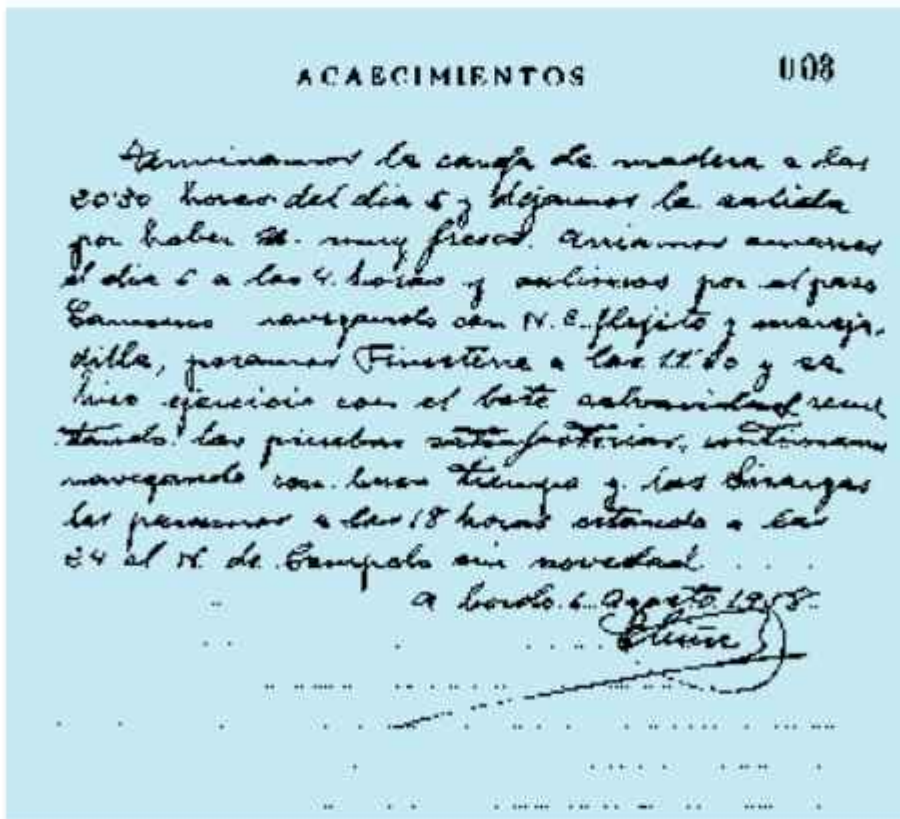 ACAECIMIENTOS 003
Terminamos la carga de madera a las
20'30 horas del dia 5 y dejamos la salida
por haber N. muy fresco. Arriamos amarras
el dia 6 a las 4 horas y salimos por el paso
navegando con N.E. flojito y mareja,
dilla, pasamos Finisterre a las 11' y se
hizo ejercicio con el bote salvavidas resul
tando las pruebas satisfactorias, continuamos
navegando con buen tiempo y las Sisargas
las pasamos a las 18 horas estando a las
24 al N. de sin novedad
A bordo 6 Agosto 1958